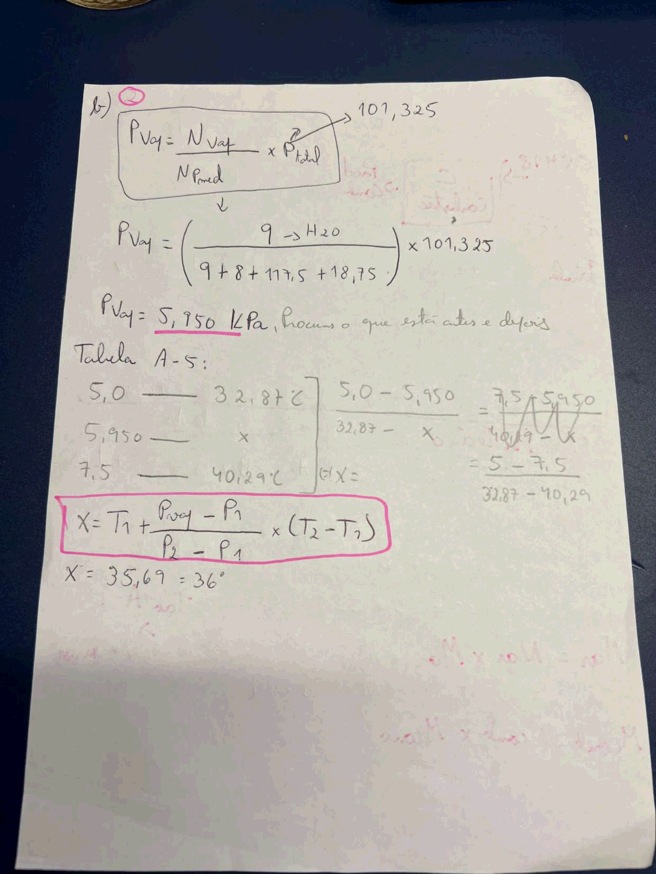 b) 2
101,325
PVap = NVap / NProd × Ptotal
↓
PVap = ( 9 → H2O / 9 + 8 + 117,5 + 18,75 ) × 101,325
PVap = 5,950 kPa, Procuro o que está antes e depois
Tabela A-5:
5,0 — 32,87°C
5,950 — x
7,5 — 40,29°C
5,0 - 5,950 / 32,87 - x = 7,5 - 5,950 / 40,29 - x
= 5 - 7,5 / 32,87 - 40,29
(=) x =
X = T1 + PVap - P1 / P2 - P1 × (T2 - T1)
X = 35,69 = 36°